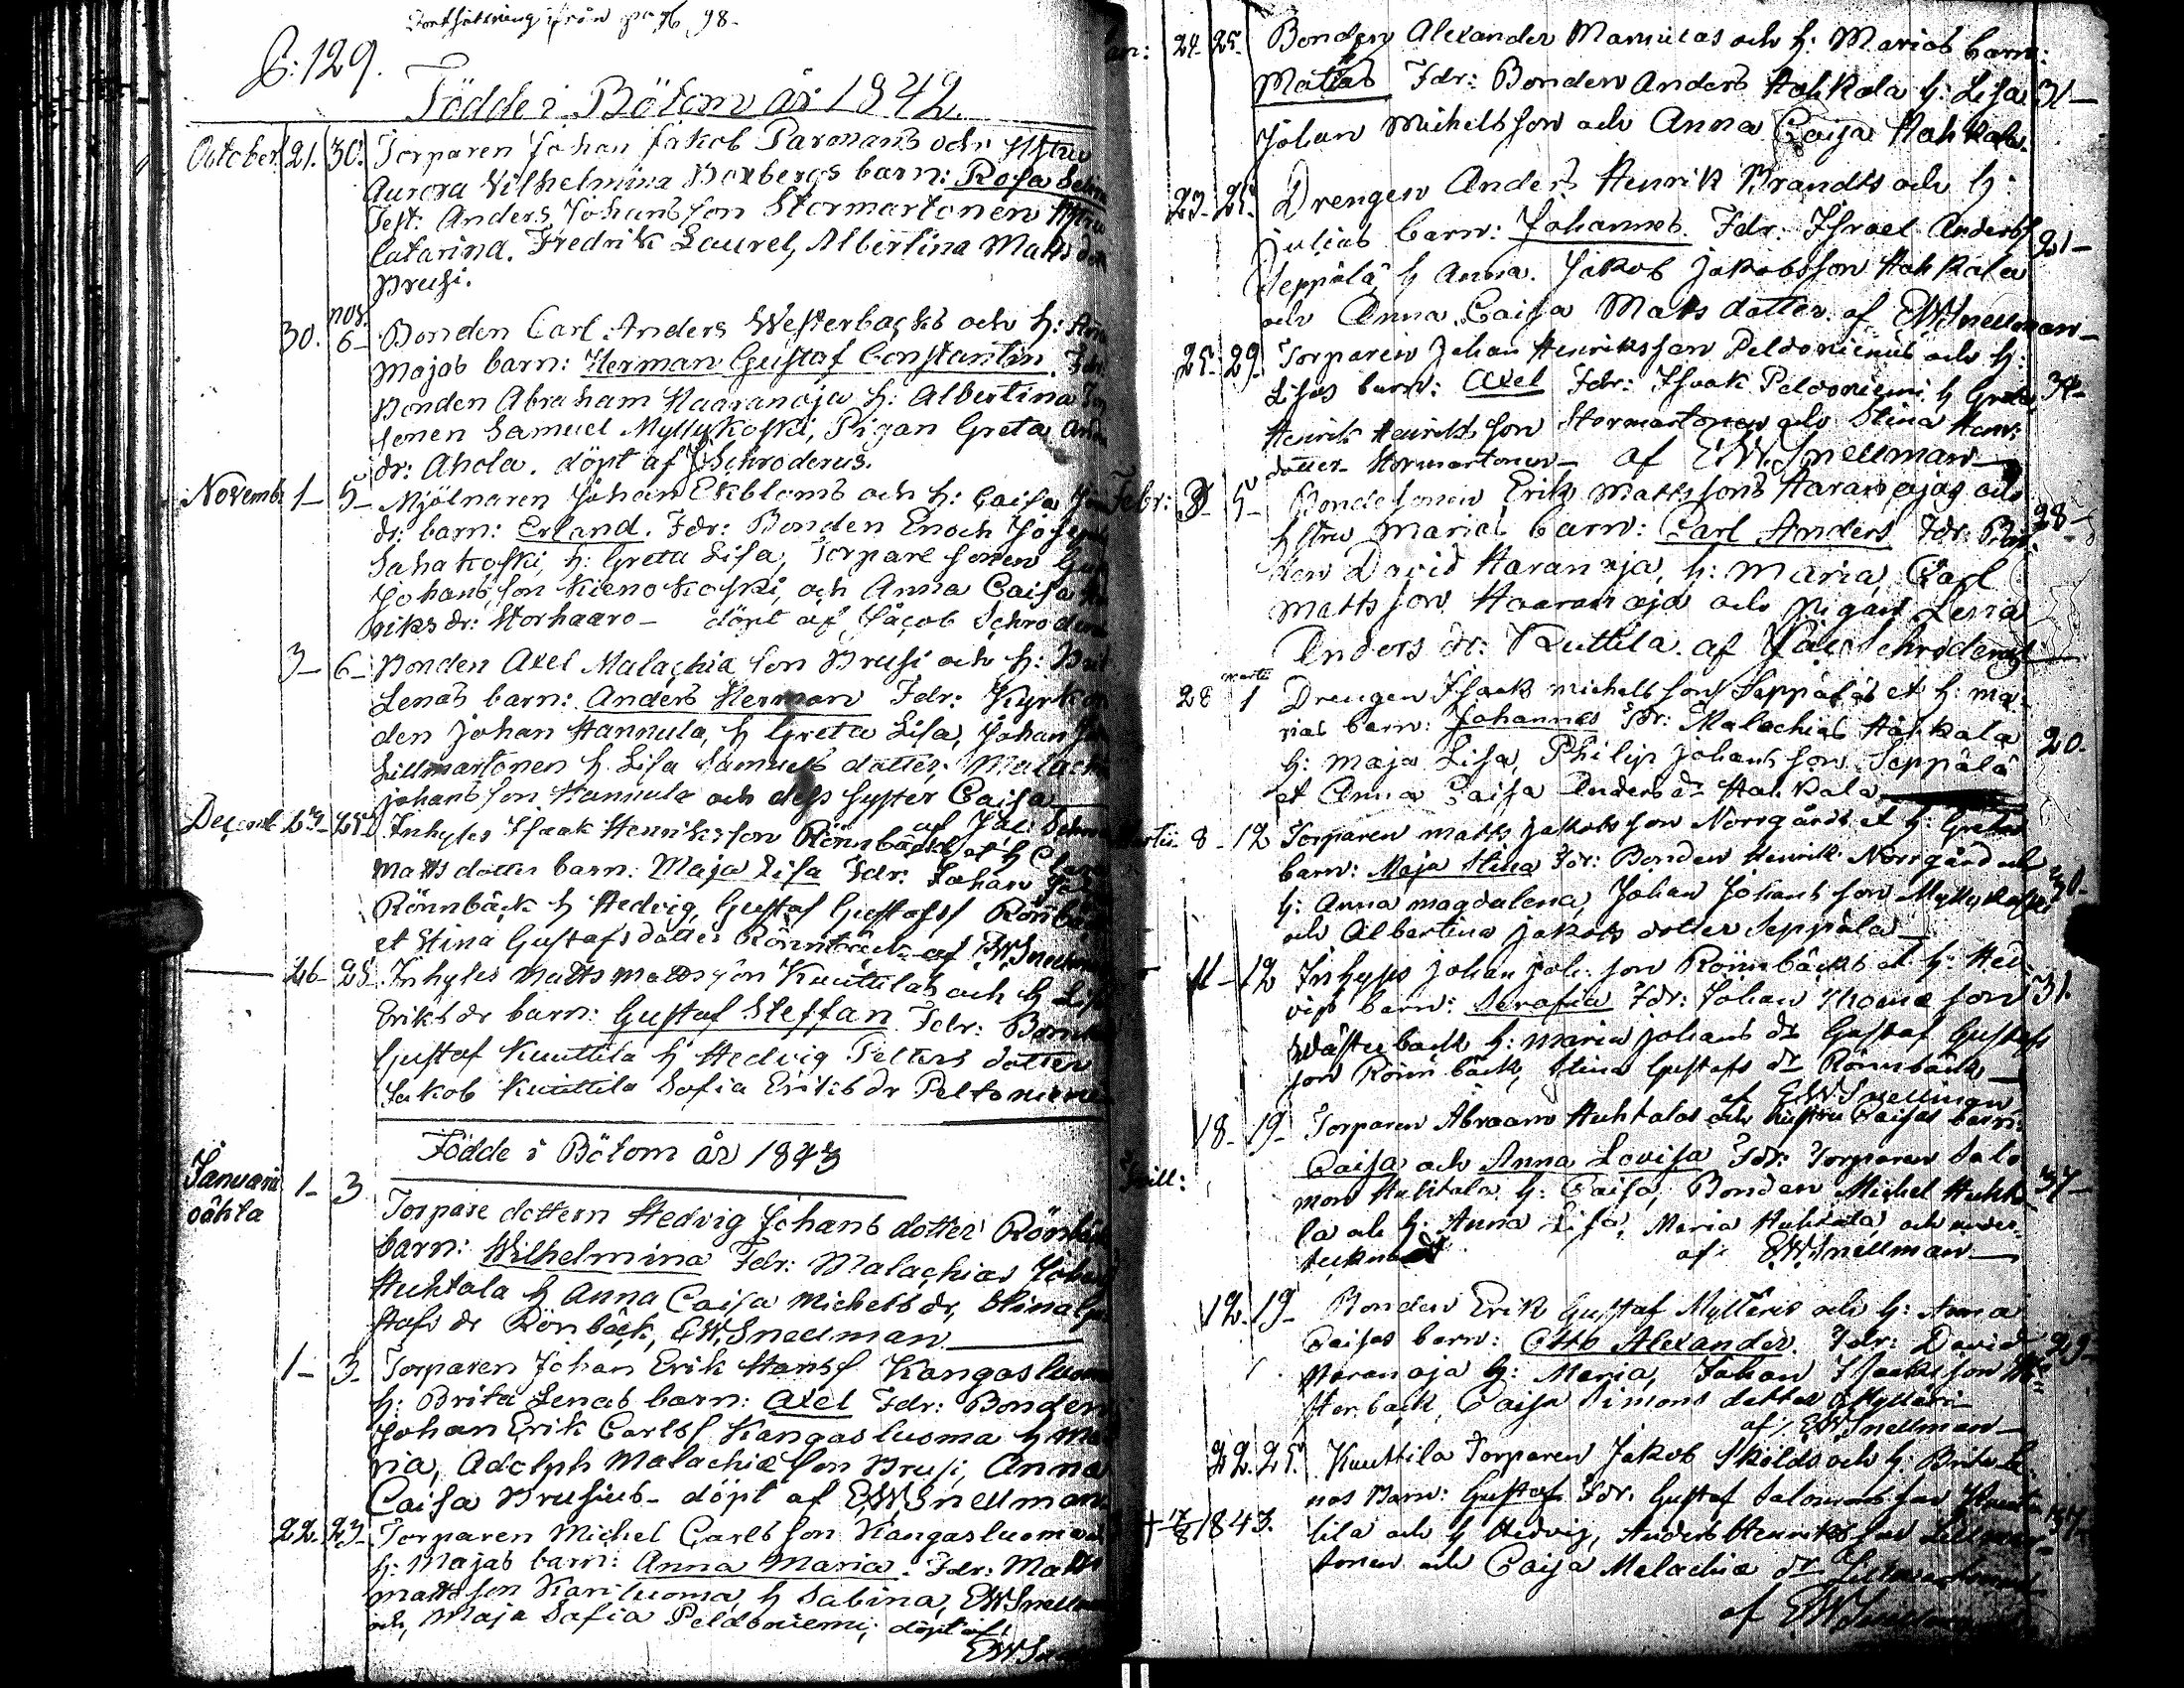 Fortsättning ifrån pag 98.
S: 129.
Födde i Bötom år 1842.
October 21. 30. Torparen Johan Jakob Paronans och Hstru
Aurora Vilhelmina Boxbergs barn: Rosa Selin
Test: Anders Johansson Stormartonen Hstru
Catarina. Fredrik Laurel, Albertina Matts dr
Brusi.
30. nov. 6- Bonden Carl Anders Westerbacks och h: Ann
Majas barn: Herman Gustaf Constantin. Fdr:
Bonden Abraham Haaranoja h: Albertina
sonen Samuel Myllykoski, Pigan Greta And
dr: Ahola. döpt af J Schroderus.
Novemb 1- 5- Mjölnaren Johan Ekbloms och h: Caisa
dr: barn: Erland. Fdr: Bonden Enoch Joseph
Sahakoski, h: Greta Lisa, Torpare sonen
Johansson Kienokoski, och Anna Caisa
riksdr: Storhaaro- döpt af Jacob Schroderus
3- 6- Bonden Axel Malachiæ son Brusi och h: Brit
Lenas barn: Anders Herman Fdr: Kyrkov
den Johan Hannula, h Greta Lisa, Johan
Lillmartonen h. Lisa Samuels dotter, Malach
johansson Hannula och dess syster Caisa
af Jac: Schro
Decemb 23- 25 Inhyses Isaak Henriksson Rönnbäcks et h Clara
Matts dotter barn: Maja Lisa Fdr: Johan
Rönnbäck h Hedvig, Gustaf Gustafss Rönnbäck
et Stina Gustafs dotter Rönnbäck af EWSnellman
26- 28. Inhyses Matts Mattsson Kuuttilas och h Lisa
Eriks dr barn: Gustaf Steffan Fdr: Bonden
Gustaf Kuuttila h Hedvig Petters dotter
Jakob Kuuttila Sofia Eriks dr Peltoniemi
Födde i Bötom år 1843
Januarii 1- 3 Torpare dottern Hedvig Johans dotter Rönbäck
oäkta barn: Wilhelmina Fdr: Malachias Johan
Huhtala h Anna Caisa Michels dr, Stina Gu
stafs dr Rönbäck, EWSnellman
1- 3- Torparen Johan Erik Hanss Kangasluoma
h: Brita Lenas barn: Axel Fdr: Bonden
Johan Erik Carlss Kangasluoma h Ma
ria, Adolph Malachiæ son Brusi, Anna
Caisa Brusius- döpt af EWSnellman
22. 23- Torparen Michel Carlsson Kangasluoma
h: Majas barn: Anna Maria. Fdr: Matts
Mattsson Kariluoma, h Sabina, EWSnellman
och, Maja Safia Peldoniemi, döpt af
EWSn
an: 24- 25- Bonden Alexander Mamilas och h: Marias barn:
Mattas Fdr: Bonden Anders Hahkala h: Lisa 31-
Johan Michelsson och Anna Caisa Hahkala.
23- 25. Drengen Anders Henrik Brandts och h:
Julias barn: Johannes. Fdr: Israel Anderss 21-
Seppälä, h Anna. Jakob Jakobsson Hahkala
och Anna Caisa Mats dotter. af EWSnellman-
25- 29. Torparen Johan Henriksson Peldoniemis och h:
Lisas barn: Axel Fdr: Isaak Peldoniemi h Greta 34-
Henrik Henriksson Stormartonen och Stina Hen:
dotter Stormartonen- af EWSnellman-
Febr: 3- 5- Bondesonen Erik Mattssons Haranojas och
hstru Marias barn: Carl Anders Fdr: Bon 28-
den David Haranoja, h: Maria, Carl
Mattsson Haaranoja och pigan Lena
Anders dr: Kuttila. af Jac: Schroderus
28 martii 1 Drengen Isaak Michelsson Seppäläs et h: Ma
rias barn: Johannes Fdr: Malachias Hahkala 20-
h: Maja Lisa, Philip Johansson Seppälä
et Anna Caisa Anders dr Hahkala
Martii 8- 12 Torparen Matts Jakobsson Norrgårds et h: Greta
barn: Maja Stina Fdr: Bonden Henrik Norrgård och 30-
h: Anna Magdalena, Johan Johansson Myllykoski
och Albertina Jakobs dotter Seppälä
11- 12 Inhyses Johan Joh: son Rönnbäcks et h: Hed
vigs barn: Serafia Fdr: Johan Thomæ son 31.
Wästerback h: Maria Johans dr Gustaf Gustafs
son Rönnbäck, Stina Gustafs dr Rönnbäck
af EWSnellman
18- 19- Torparen Abraam Huhtalas och hustru Caisas barn:
Tvill: Caisa och Anna Lovisa Fdr: Torparen Salo
mon Huhtala h: Caisa, Bonden Michel Huhta 37-
la och h: Anna Lisa, Maria Huhtala och under
tecknad af EWSnellman-
12. 19- Bonden Erik Gustaf Mylläris och h: Anna
Caisas barn: Otto Alexander. Fdr: David 29-
Haranoja h: Maria, Johan Isaaksson We
sterback, Caisa Simons dotter Mylläri
af EWSnellman-
22. 25. Kuuttila Torparen Jakob Skölds och h: Brita Le
nas Barn: Gustaf Fdr. Gustaf Salomonsson Kuut 37-
† 7/8 1843. tila och h Hedvig, Anders Henriksson Lillmar
tonen och Caisa Malachiæ dr Lillmartonen
af EWSnellman